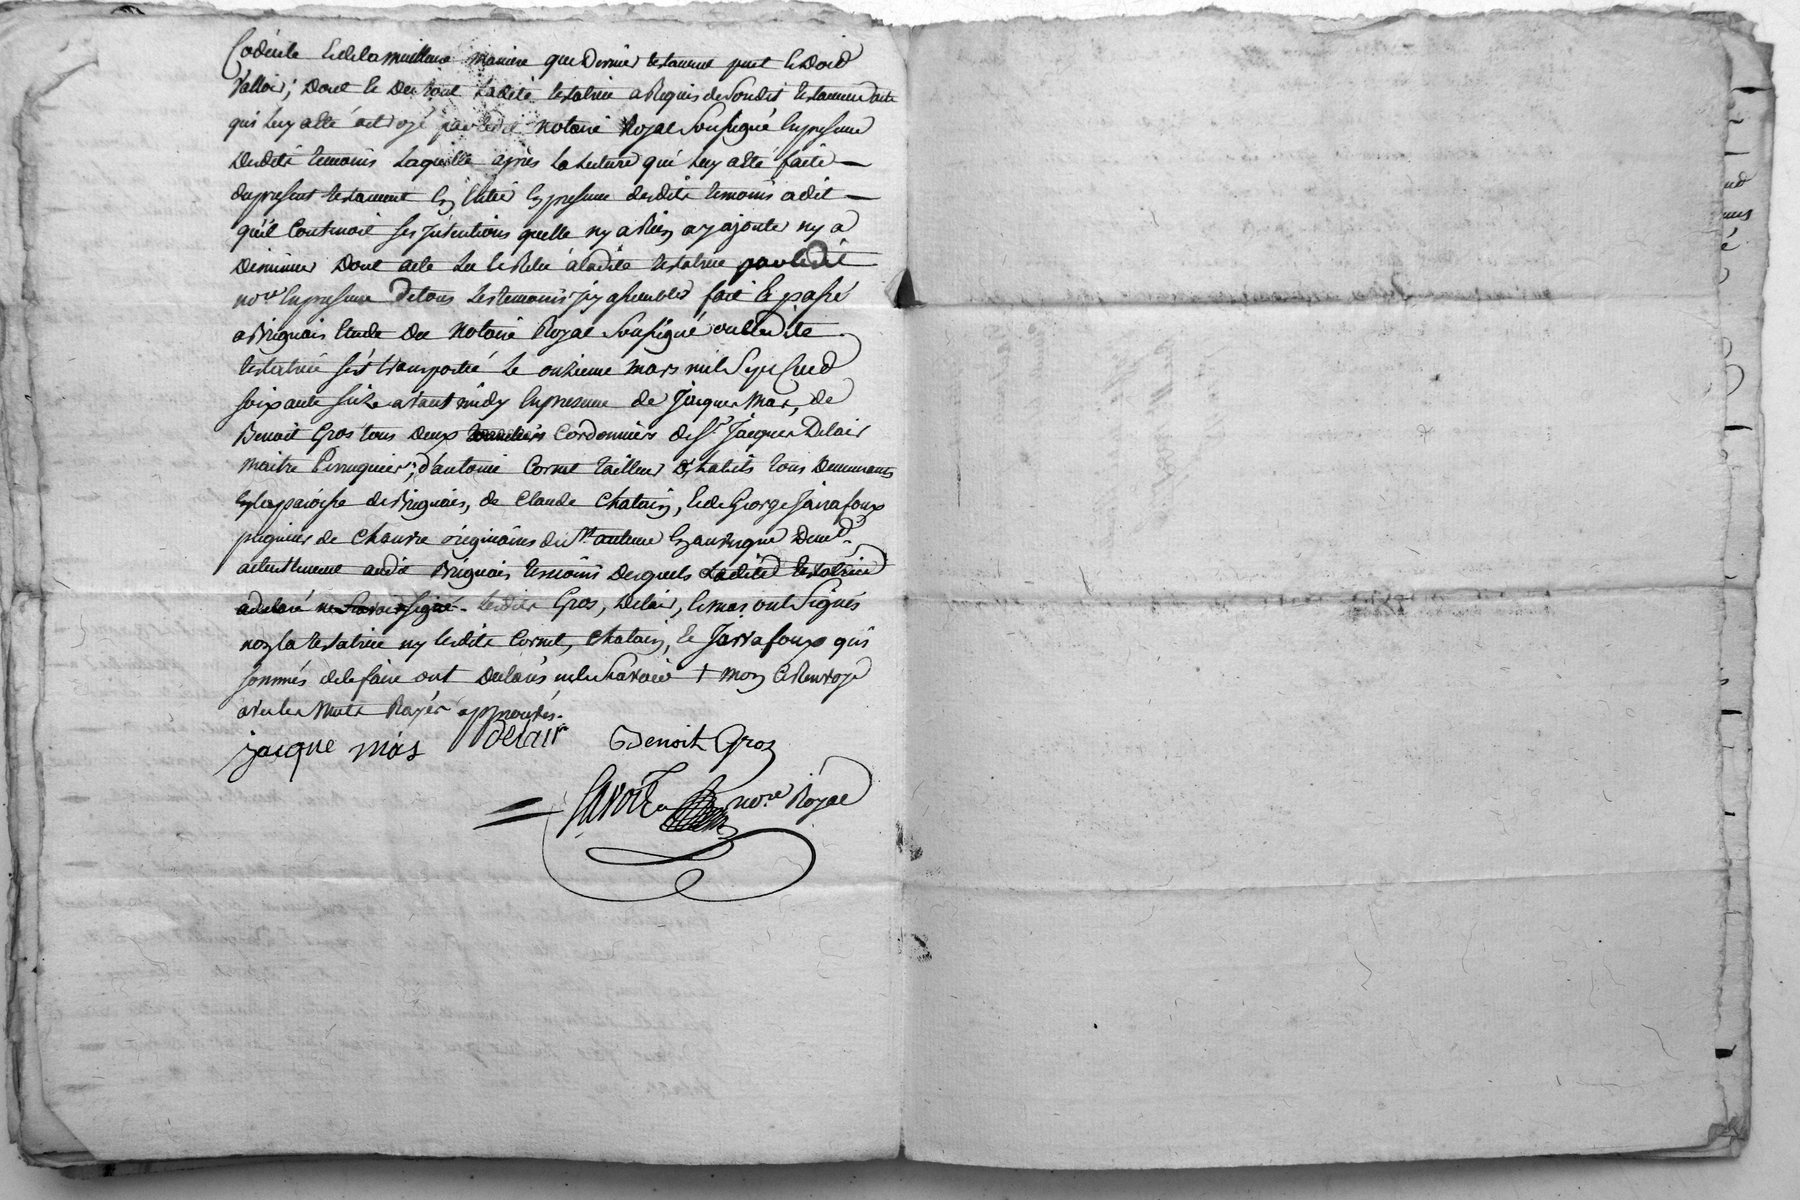 Codicile Et de la meilleure maniere que dernier testament peut Et doit
Valloir; Dont Et Du tout Ladite testatrice a Requis de Son dit testament acte
qui Luy a eté octroyé par Ledit notaire Royal Soussigné En presence
Desdits temoins Laquelle après La Lecture qui Luy a eté faite —
du present testament En Entier En presence desdits temoins a dit —
qu'il Contenoit Ses Intentions quelle ny a Rien a y ajouter ny a
Diminuer Dont acte Lu Et Relu a ladite testatrice par ledit
nore En presence De tous Les temoins Icy assemblés fait Et passé
a Brignais Etude Du Notaire Royal Soussigné ou La dite
testatrice s'est transportée Le onzieme mars mil Sept Cent
soixante seize avant midy En presence de Jacques Mas, de
Benoit Gros tous Deux Cordonniers de Sr. Jacques Delair
Maitre Perruquier, d'antoine Cornet tailleur D'habits tous Demeurants
En la paroisse de Brignais, de Claude Chatain, Et de George Jarrafoux
peigneurs de Chanvre originaires de St. anteme En auvergne Demts.
actuellement audit Brignais temoins Desquels Ladite testatrice
a declaré ne Savoir signer - Lesdits Gros, Delair, Et mas ont Signés
non la testatrice ny Lesdits Cornet, Chatain, Et Jarrafoux qui
sommés de le faire ont Declarés ne le Savoir + mon Et Renvoye
avec Les Mots Rayés approuvés.
jacque mas Delair Benoit Gros
nore Royal